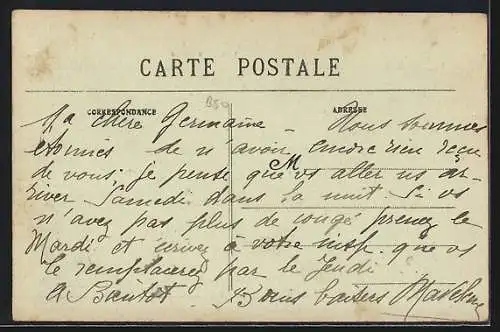 CARTE POSTALE
CORRESPONDANCE
ADRESSE
Ma chère Germaine – Nous sommes
étonnés de n'avoir encore rien reçu
de vous. je pense que vs aller ns ar-
river Samedi dans la nuit. Si vs
n'avez pas plus de congé prenez le
Mardi et écrivez à votre insp. que vs
le remplacerez par le Jeudi
A Bientôt. Bons baisers